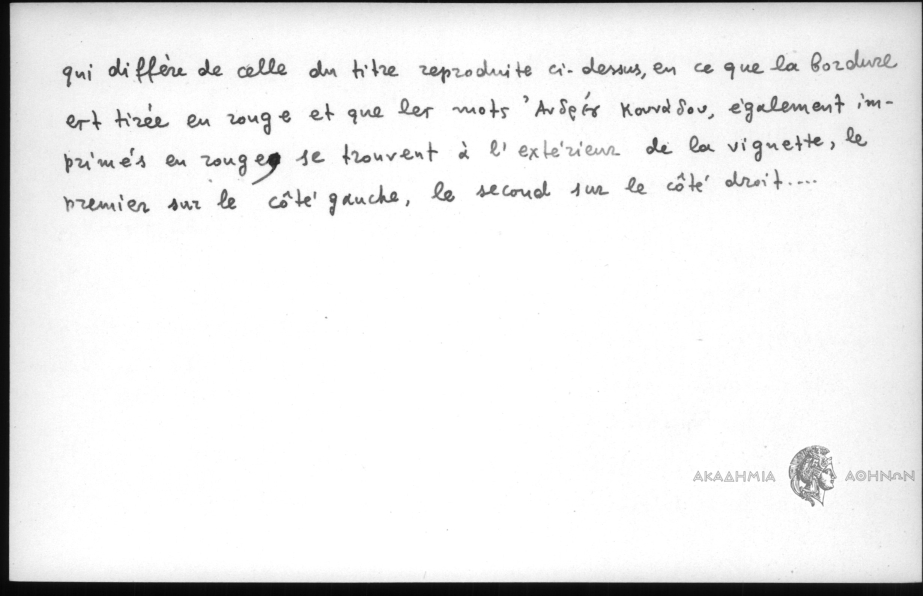 qui diffère de celle du titre reproduite ci-dessus, en ce que la bordure
est tirée en rouge et que les mots Ἀνδρέου Κουνάδου, également im-
primés en rouge, se trouvent à l'extérieur de la vignette, le
premier sur le côté gauche, le second sur le côté droit....
ΑΚΑΔΗΜΙΑ ΑΘΗΝΩΝ